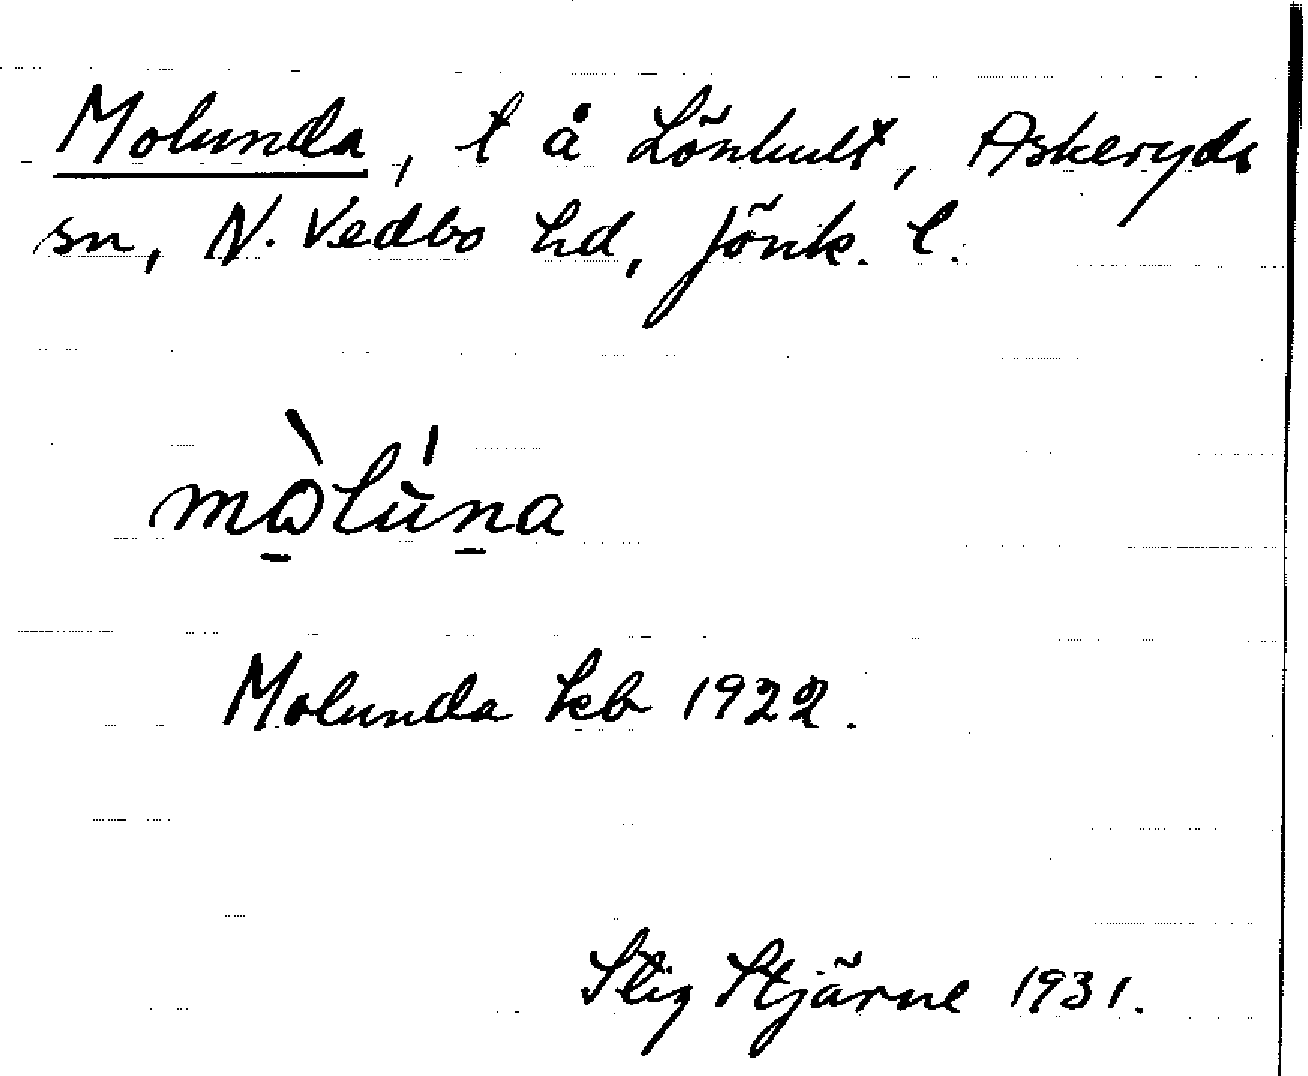 Molunda, t å Lönhult, Askeryds
sn, N. Vedbo hd, Jönk. l.
mòlúna
Molunda kb 1922.
Stig Stjärne 1931.